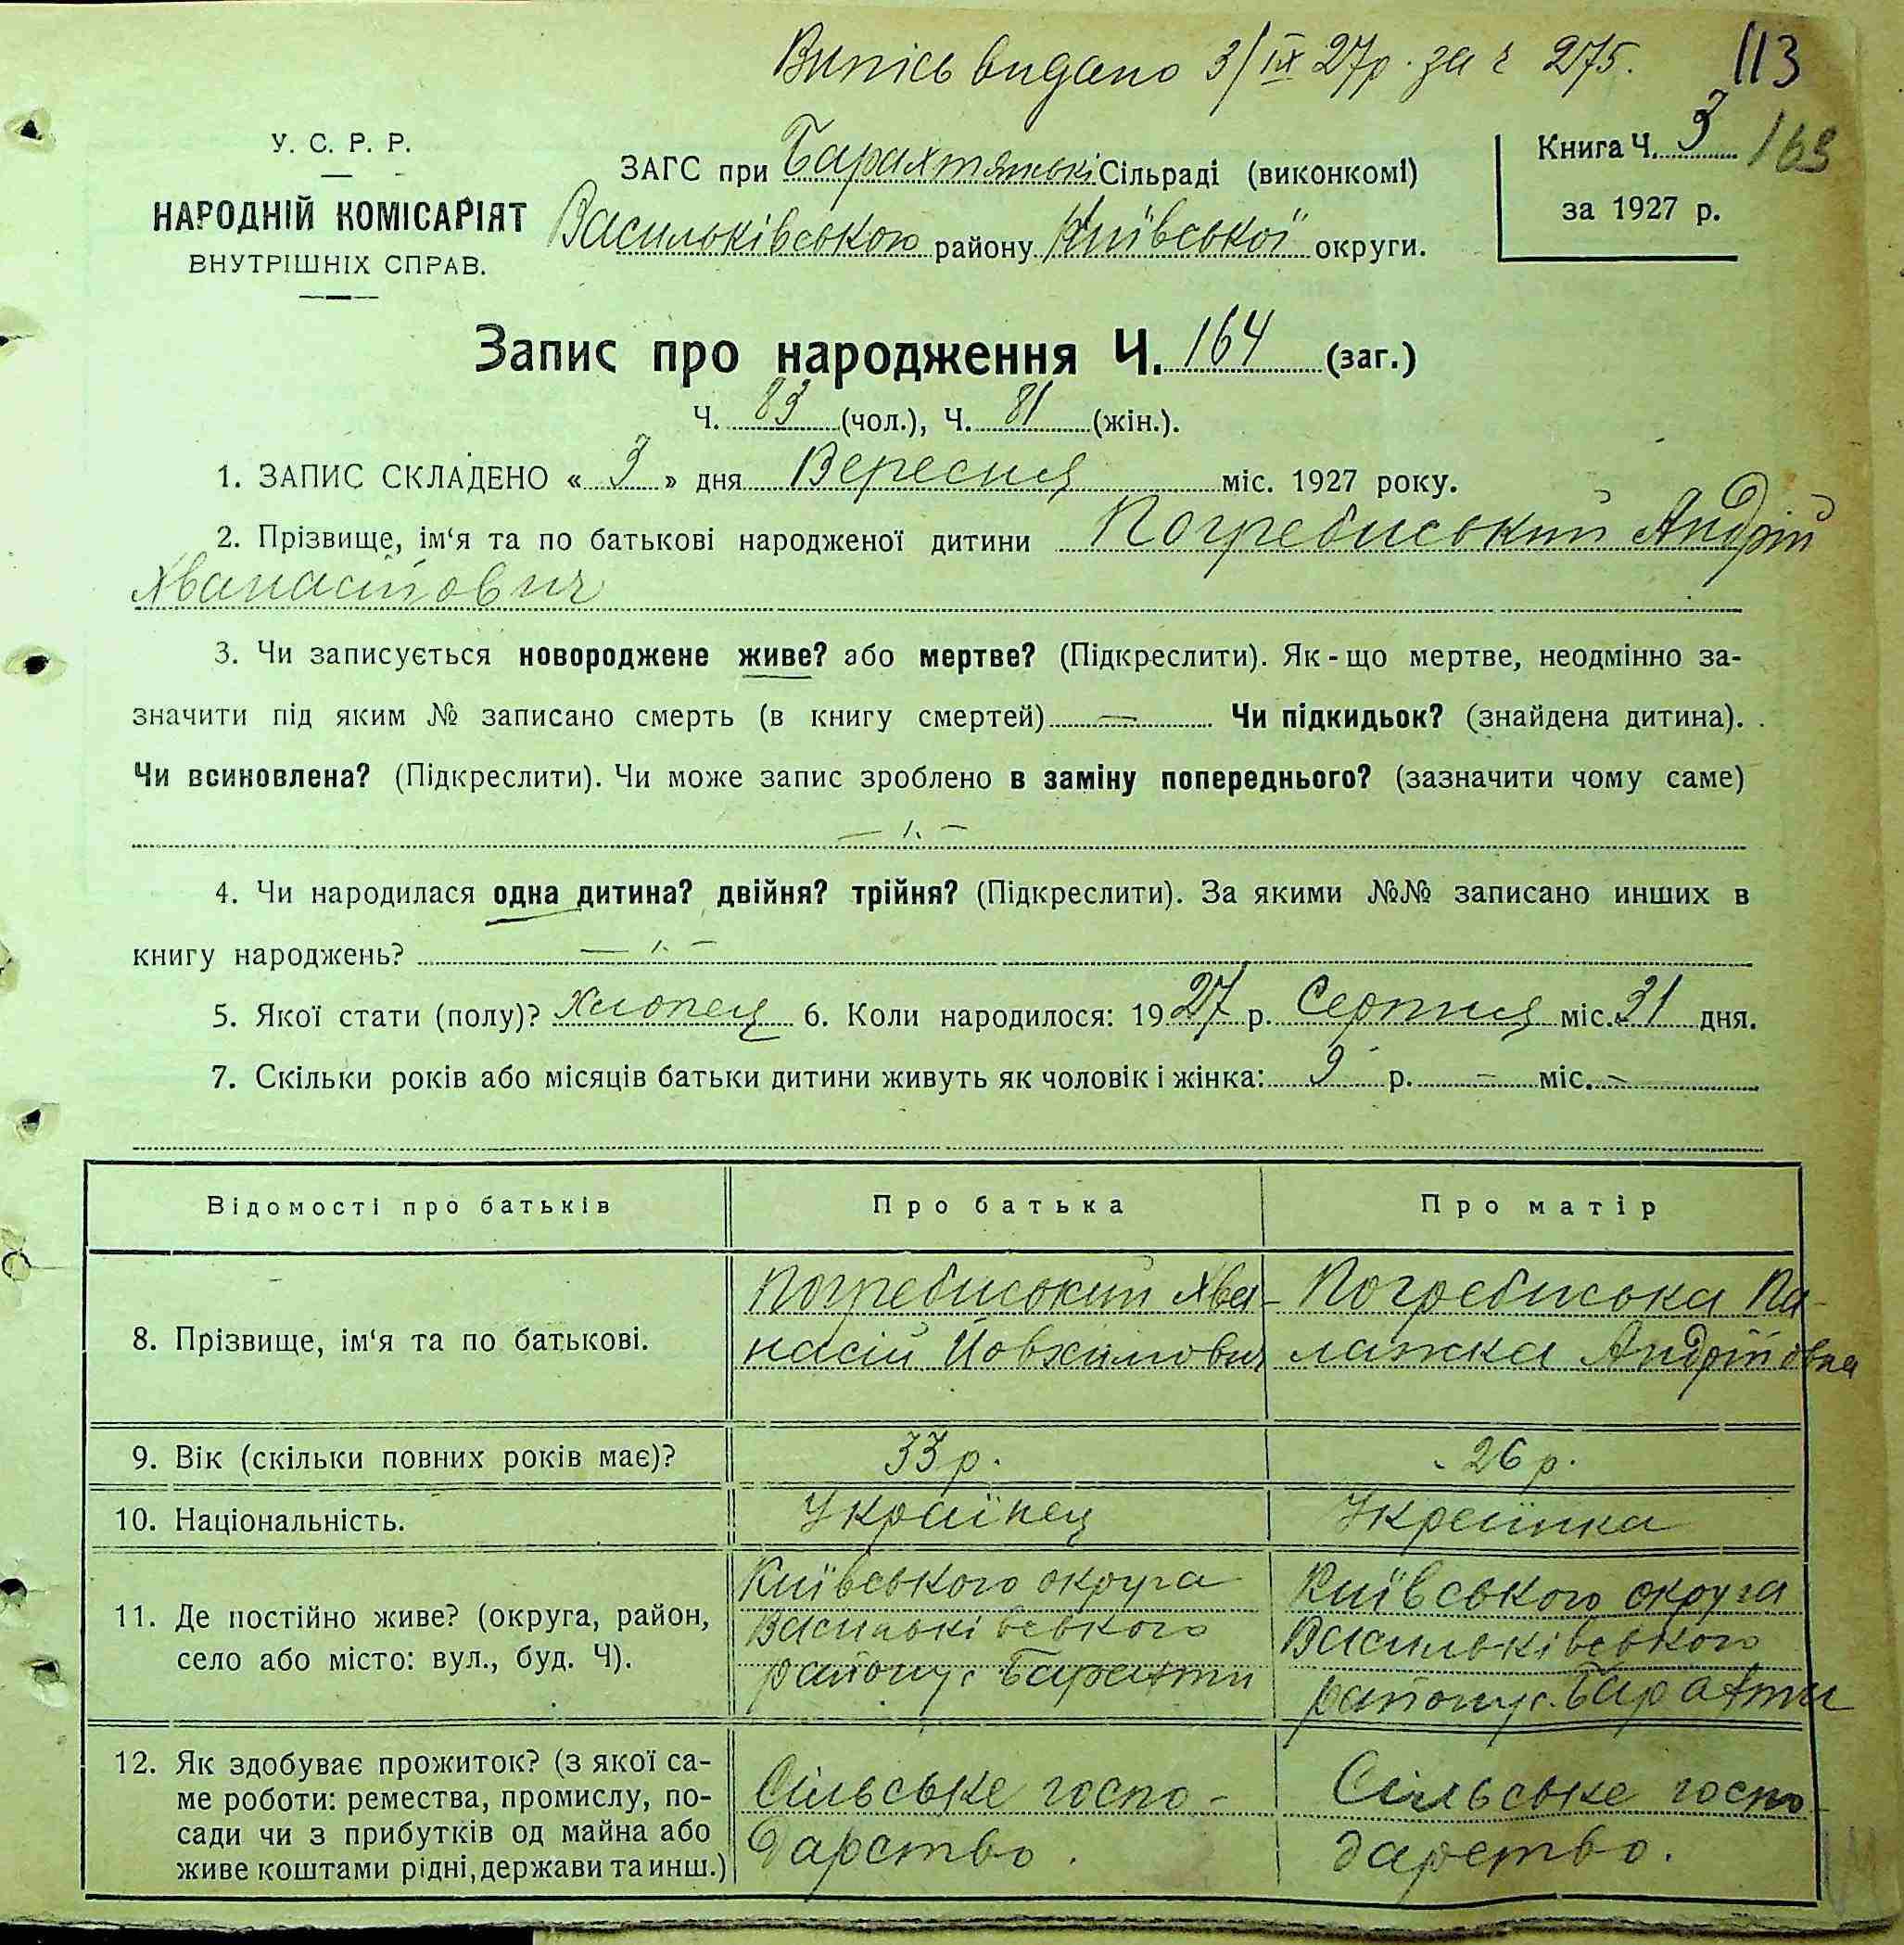 Випісь видано 3/IX 27р. за ч 275.
113
У. С. Р. Р.
НАРОДНІЙ КОМІСАРІЯТ
ВНУТРІШНІХ СПРАВ.
ЗАГС при Барахтянські Сільраді (виконкомі)
Васильківського району Київської округи.
Книга Ч. 3
163
за 1927 р.
Запис про народження Ч. 164 (заг.)
Ч. 83 (чол.), Ч. 81 (жін.).
1. ЗАПИС СКЛАДЕНО « 3 » дня Вересня міс. 1927 року.
2. Прізвище, ім‘я та по батькові народженої дитини Погребиський Андрій
Хванасійович
3. Чи записується новороджене живе? або мертве? (Підкреслити). Як-що мертве, неодмінно за-
значити під яким № записано смерть (в книгу смертей) — Чи підкидьок? (знайдена дитина).
Чи всиновлена? (Підкреслити). Чи може запис зроблено в заміну попереднього? (зазначити чому саме)
4. Чи народилася одна дитина? двійня? трійня? (Підкреслити). За якими №№ записано инших в
книгу народжень?
5. Якої стати (полу)? Хлопец 6. Коли народилося: 1927 р. Серпня міс. 31 дня.
7. Скільки років або місяців батьки дитини живуть як чоловік і жінка: 9 р. — міс. —
Відомості про батьків
Про батька
Про матір
8. Прізвище, ім‘я та по батькові.
Погребиський Хва-
насій Йовхимович
Погребиська Па-
лажка Андрійовна
9. Вік (скільки повних років має)?
33 р.
26 р.
10. Національність.
Українец
Українка
11. Де постійно живе? (округа, район,
село або місто: вул., буд. Ч).
Київського округа
Васильківського
району с Барахти
Київського округа
Васильківського
району с. Барахти
12. Як здобуває прожиток? (з якої са-
ме роботи: ремества, промислу, по-
сади чи з прибутків од майна або
живе коштами рідні, держави та инш.)
Сільське госпо-
дарство.
Сільське госпо-
дарство.